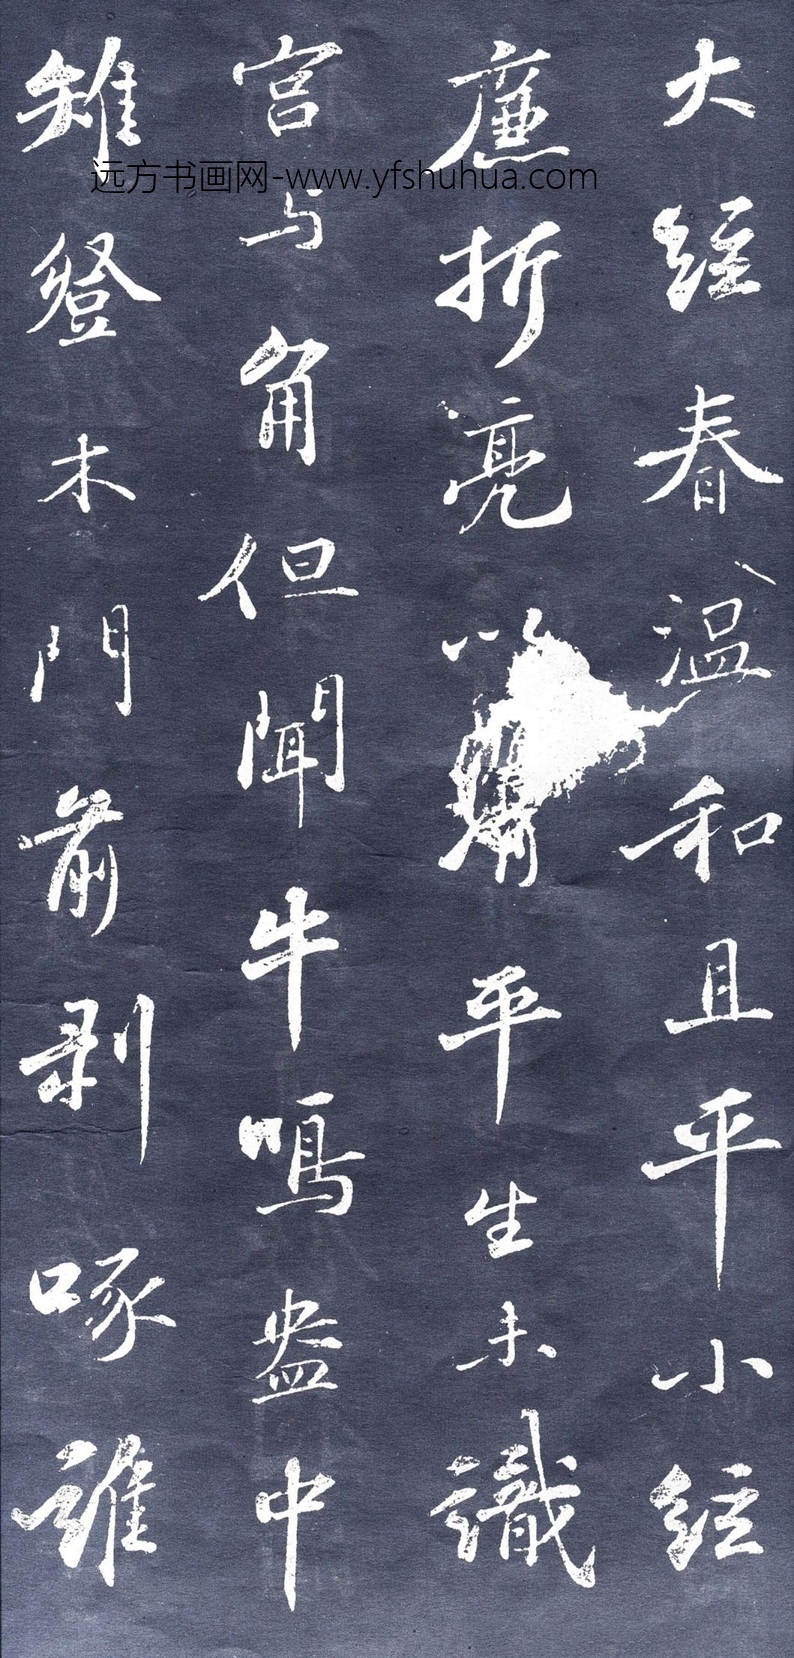 大絃春温和且平小絃
廉折亮以平生未識
宫与角但聞牛鳴盎中
雉登木門前剥啄誰
远方书画网-www.yfshuhua.com